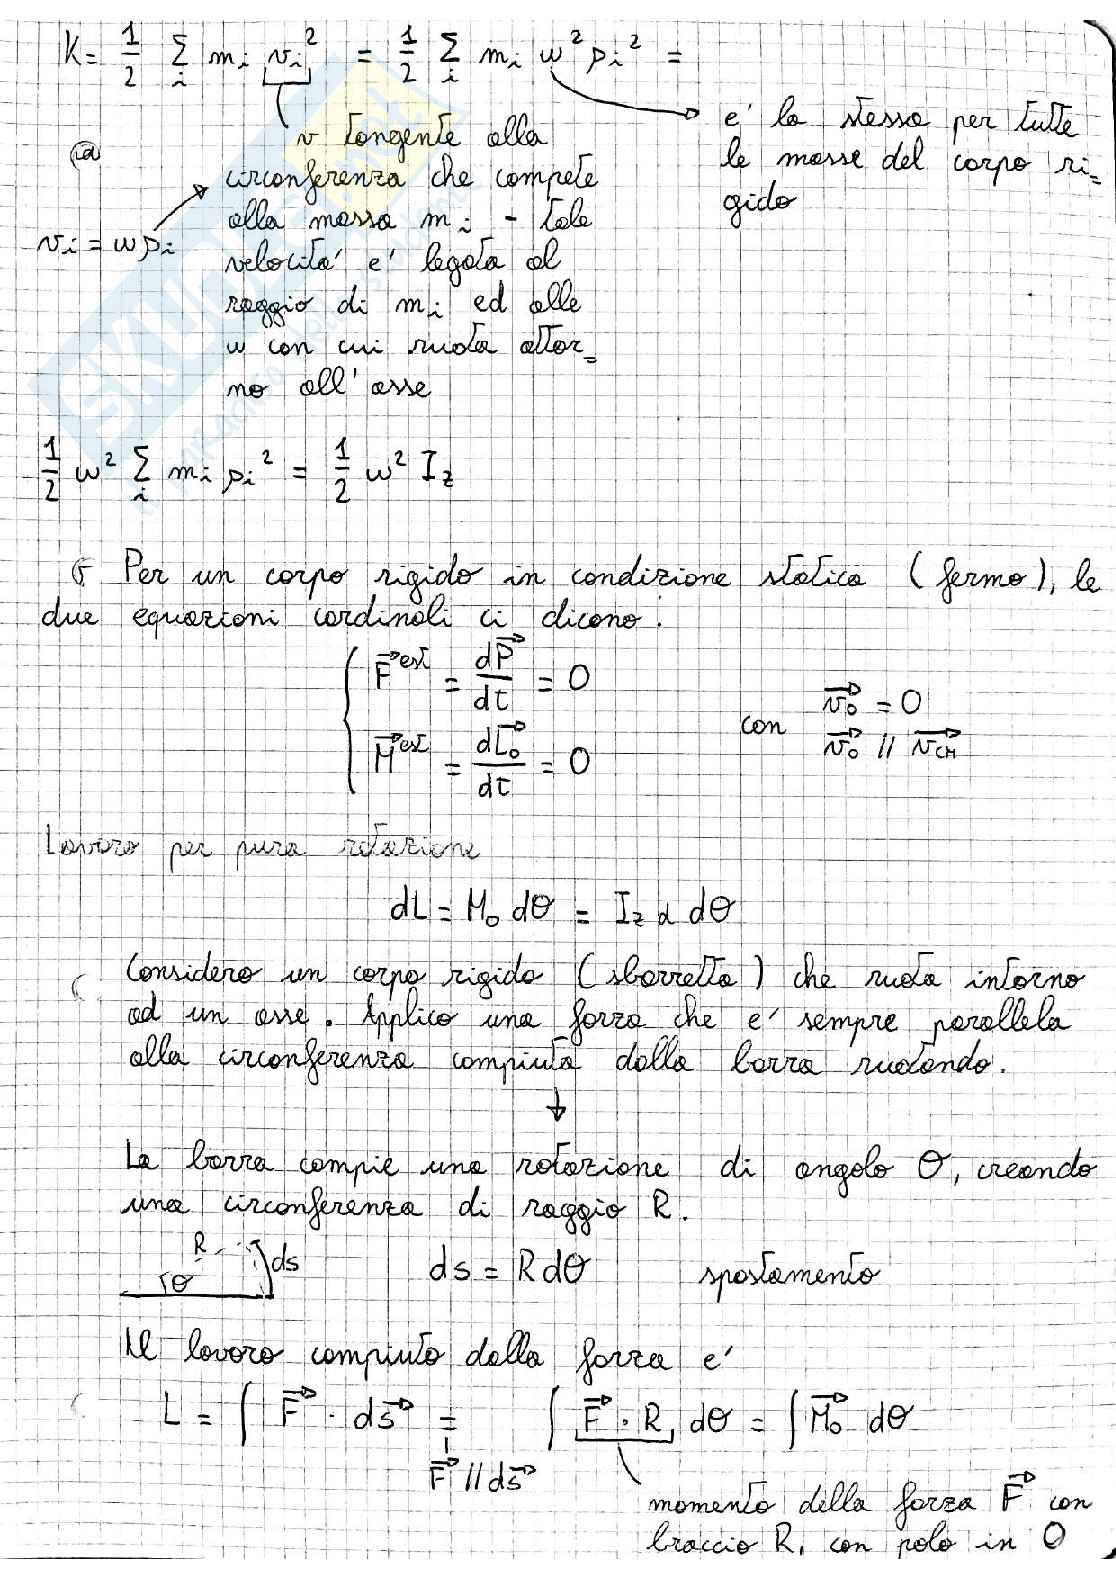 K = 1/2 Σ_i m_i v_i² = 1/2 Σ_i m_i w² ρ_i² =
v tangente alla
circonferenza che compete
alla massa m_i - tale
velocità e' legata al
raggio di m_i ed alla
w con cui ruota attor=
no all'asse
v_i = w ρ_i
e' la stessa per tutte
le masse del corpo ri=
gido
1/2 w² Σ_i m_i ρ_i² = 1/2 w² I_z
Per un corpo rigido in condizione statica (fermo), le
due equazioni cardinali ci dicono:
F⃗^est = dP⃗/dt = 0
M⃗^est = dL⃗_o/dt = 0
con v⃗_o = 0
v⃗_o // v⃗_CM
Lavoro per pura rotazione
dL = M_o dθ = I_z α dθ
Considero un corpo rigido (sbarretta) che ruota intorno
ad un asse. Applico una forza che e' sempre parallela
alla circonferenza compiuta dalla barra ruotando.
↓
La barra compie una rotazione di angolo θ, creando
una circonferenza di raggio R.
R ds
θ
ds = R dθ spostamento
Il lavoro compiuto dalla forza e'
L = ∫ F⃗ · ds⃗ = ∫ F⃗ · R dθ = ∫ M⃗_o dθ
F⃗ // ds⃗
momento della forza F⃗ con
braccio R, con polo in O